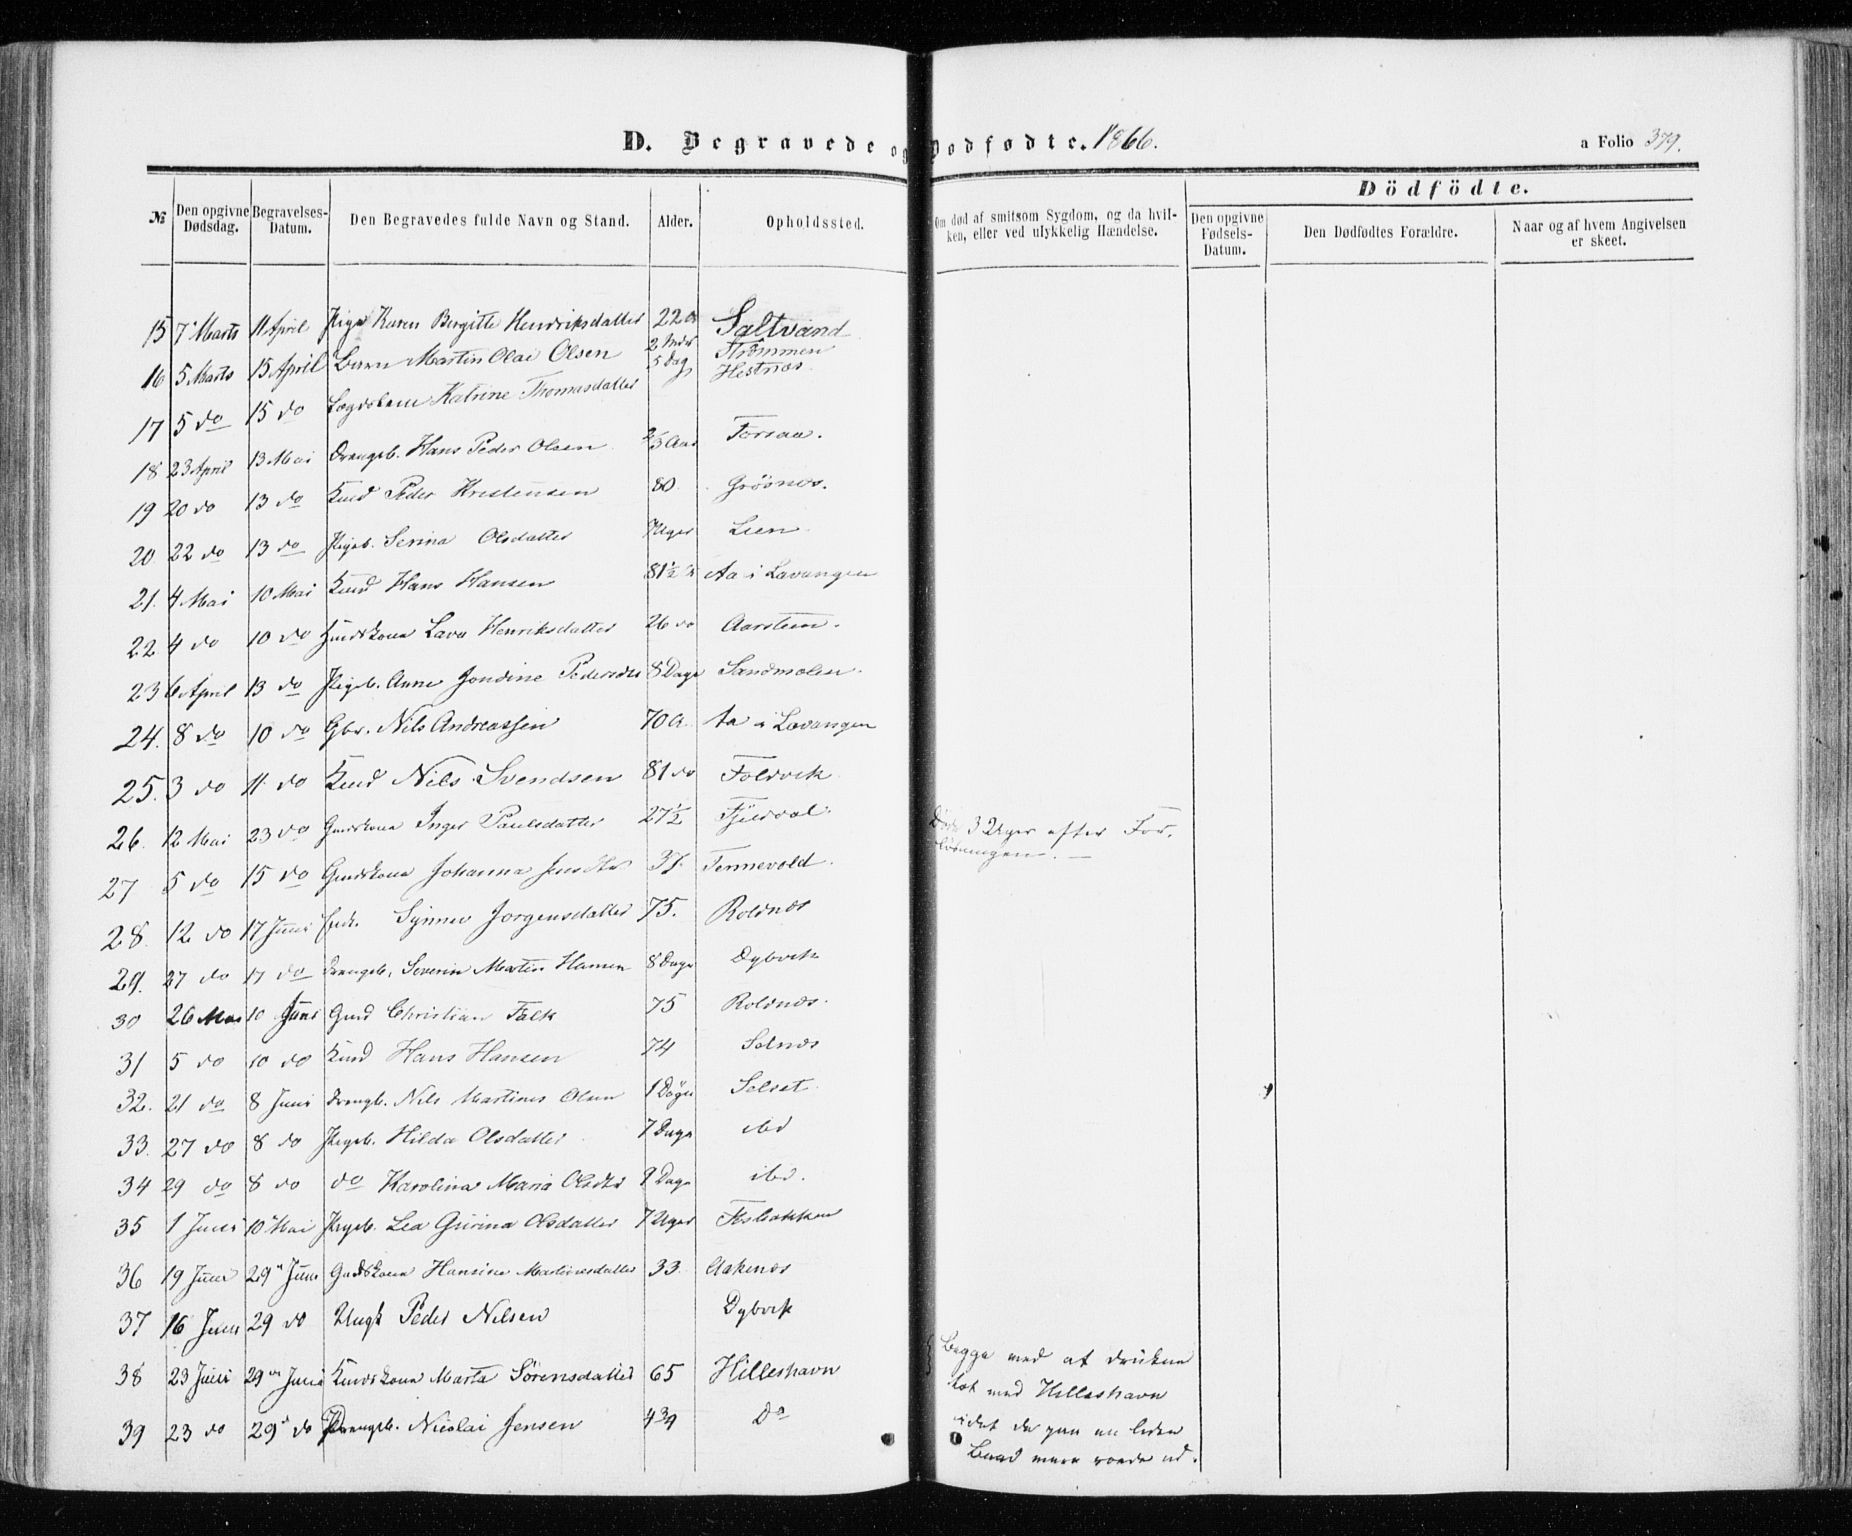 D. Begravede og Dødfødte. 1866.
a Folio 379.
№
Den opgivne Dødsdag.
Begravelses-Datum.
Den Begravedes fulde Navn og Stand.
Alder.
Opholdssted.
Om død af smitsom Sygdom, og da hvilken, eller ved ulykkelig Hændelse.
Dödfödte.
Den opgivne Fødsels-Datum.
Den Dødfødtes Forældre.
Naar og af hvem Angivelsen er skeet.
15 7 Marts 11 April Pige Karen Birgitte Hendriksdatter 22 Saltvand
16 5 Marts 15 April Barn Martin Olai Olsen 5 Dag Strømmen Hestnes
17 5 do 15 do Katrine Thomasdatter
18 23 April 13 Mai Drengeb. Hans Peder Olsen Forsaa.
19 20 do 13 do Peder Kristensen 80 Grøsnes.
20 22 do 13 do Pigeb. Serina Olsdatter Uger Lien
21. 4 Mai 10 Mai Hans Hansen 81½ Aa i Lavangen
22 4 do 10 do Lava Henriksdatter 26 do Aarsteen.
23 6 April 13 do Pigeb. Anne Jondine 8 Dage Sandmolen
24. 8 do 10 do Gbr. Nils Andreassen 70 A. Aa i Lavangen
25. 3 do 11 do Nils Svendsen 81 do Foldvik
26. 12 Mai 23 do Gmdskone Inger Paulsdatter 27½ Fjeldal Døde 3 Uger efter Forløsningen.
27 5 do 15 do Gmdskone Johanna 37 Tennevold.
28. 12 do 17 Juni Synnev Jørgensdatter 75. Roldnes
29. 27 do 17 do Drengeb. Severin Martin Hansen 8 Dage Dybvik
30 26 Mai 10 Juni Gmd Christian Falk 75 Roldnes.
31 5 do 10 do Hans Hansen 74 Selnes
32. 21 do 8 Juni Drengeb. Nils Martinus Olsen 1 Døgn Selset
33. 27 do 8 do Pigeb. Hilda Olsdatter 7 Dage ibd
34 29 do 8 do do Karolina Maria 9 Dage ibd.
35 1 Juni 10 Mai Pigeb. Lea Gurina Olsdatter 7 Uger
36 19 Juni 29 Juni Gmdskone Hansine Martinusdatter 33. Aakenes
37 16 Juni 29 do Ungk Peder Nilsen Dybvik
38 23 Juni 29 Juni Marta Sørensdatter 65 Hilleshavn Begge ved at drukne
tæt ved Hilleshavn
39 23 do 29 do Drengeb. Nicolai Jensen 4¾ Do idet de paa en liden
Baad vare roede ud.